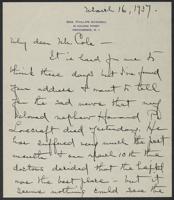 March 16, 1937.
MRS. PHILLIPS GAMWELL
PROVIDENCE, R. I.
My dear Mr. Cole —
It is hard for me to
think these days but I've found
your address & want to tell
you the sad news that my
beloved nephew Howard P.
Lovecraft died yesterday. He
has suffered very much the past
months & on March 10th the
doctors decided that the hospital
was the best place — but it
seems nothing could save the